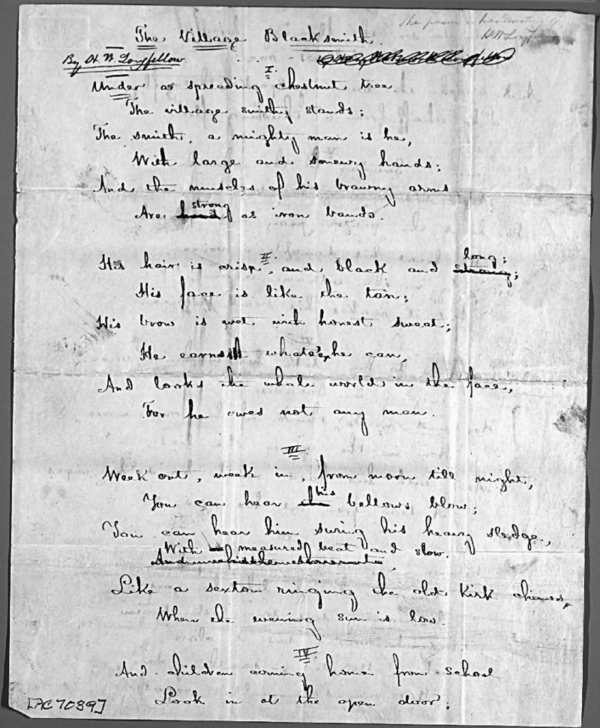 The poem in handwriting
The Village Blacksmith.
By H. W. Longfellow.
I.
Under a spreading chestnut tree
The village smithy stands;
The smith, a mighty man is he,
With large and sinewy hands;
And the muscles of his brawny arms
Are strong as iron bands.
II
His hair is crisp, and black and long;
His face is like the tan;
His brow is wet with honest sweat;
He earns whate'er he can,
And looks the whole world in the face,
For he owes not any man.
III
Week out, week in, from morn till night,
You can hear his bellows blow;
You can hear him swing his heavy sledge,
With measured beat and slow.
Like a sexton ringing the old kirk chimes,
When the evening sun is low.
IV
And children coming home from school
Look in at the open door;
[PC 7089]